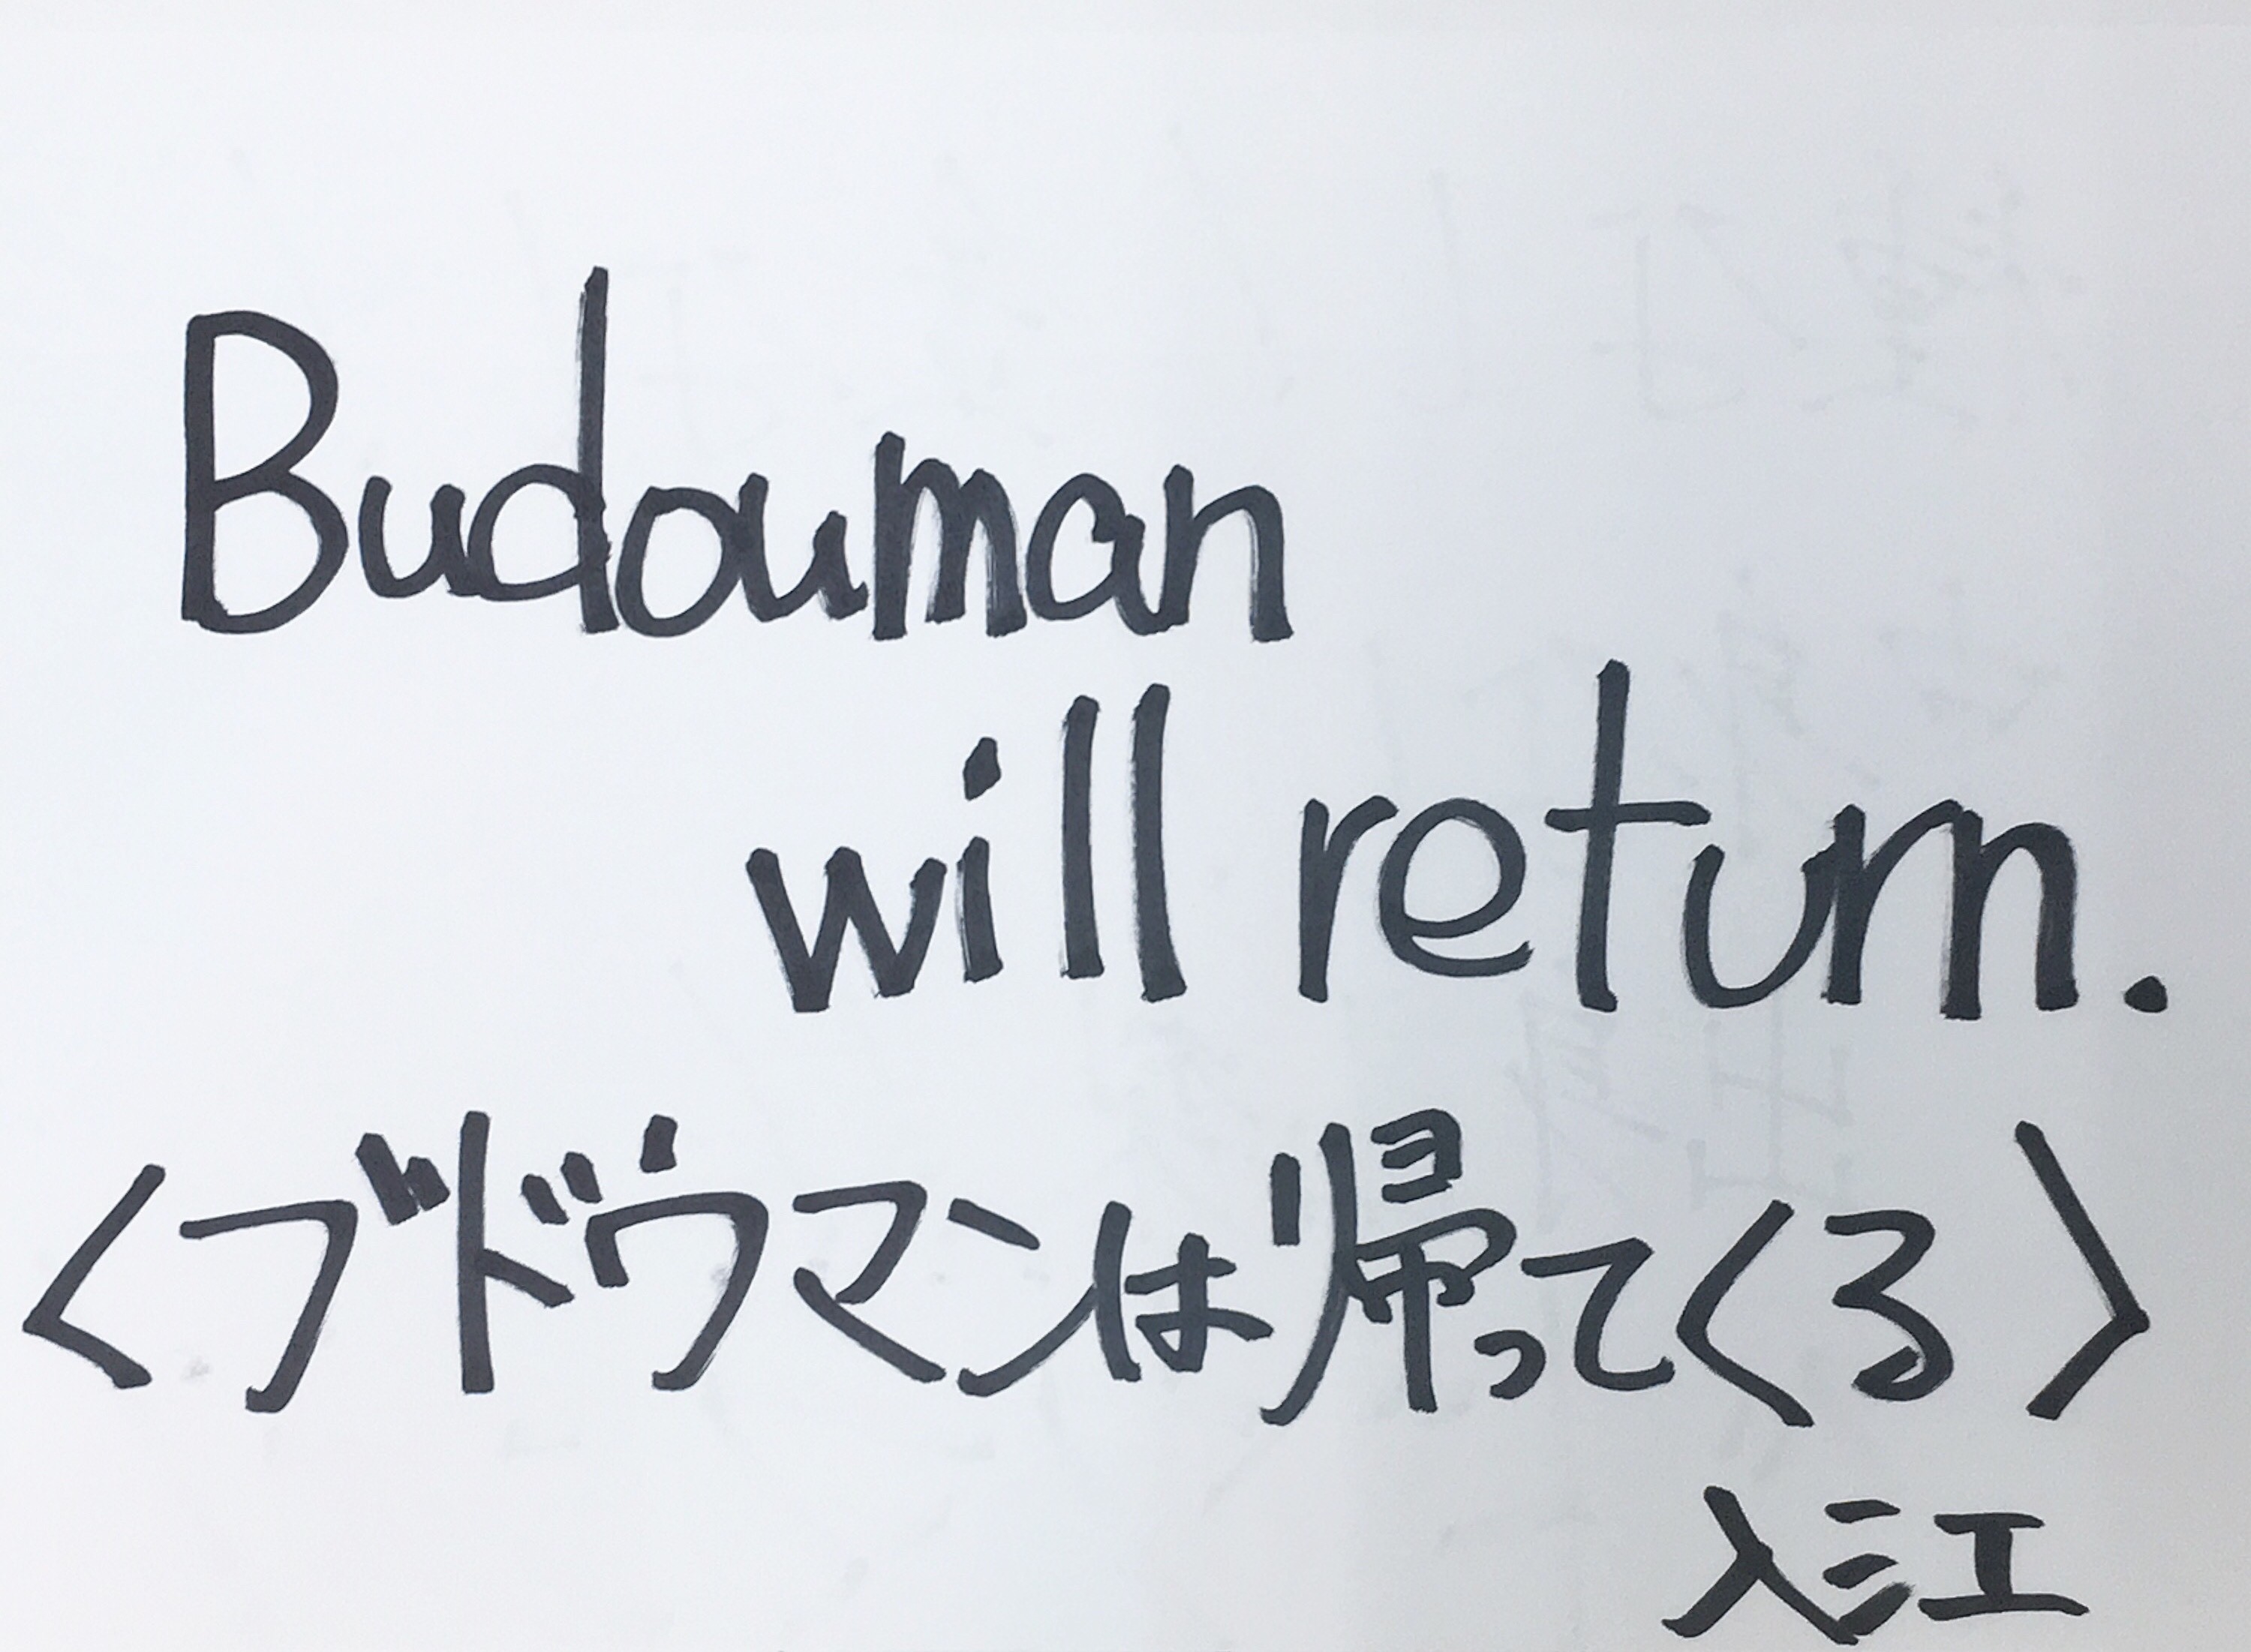 Budouman
will return.
〈ブドウマンは帰ってくる〉
入江